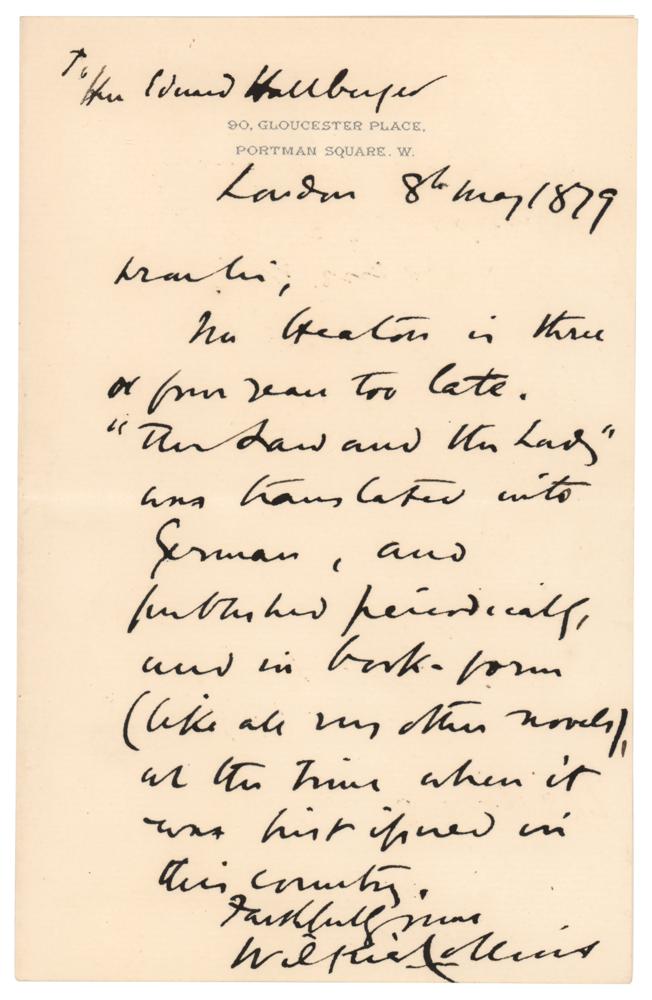 To Herr Eduard Hallberger
90, GLOUCESTER PLACE,
PORTMAN SQUARE. W.
London 8th May 1879
Dear Sir,
Mr Heaton is three
or four years too late.
"The Law and the Lady"
was translated into
German, and
published periodically,
and in book-form
(like all my other novels),
at the time when it
was first issued in
this country.
Faithfully yours
Wilkie Collins